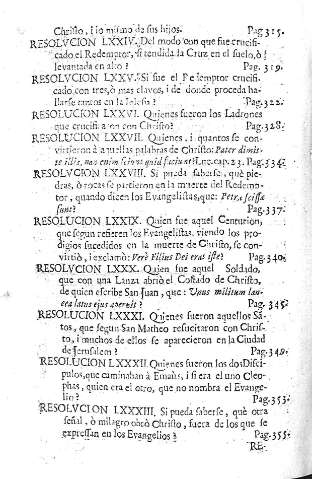 Christo, i lo mismo de sus hijos. Pag. 315.
RESOLUCION LXXIV. Del modo con que fue crucifi-
cado el Redemptor, si tendida la Cruz en el suelo, ò
levantada en alto? Pag. 319.
RESOLUCION LXXV. Si fue el Redemptor crucifi-
cado con tres, ò mas clavos, i de donde proceda ha-
llarse tantos en la Iglesia? Pag. 322.
RESOLUCION LXXVI. Quienes fueron los Ladrones
que crucificaron con Christo? Pag. 328.
RESOLUCION LXXVII. Quienes, i quantos se con-
virtieron à aquellas palabras de Christo: Pater dimit-
te illis, non enim sciunt quid faciunt? Luc. cap. 23. Pag. 534.
RESOLUCION LXXVIII. Si pueda saberse, què pie-
dras, ò rocas se partieron en la muerte del Redemp-
tor, quando dicen los Evangelistas, que: Petræ scissæ
sunt? Pag. 337.
RESOLUCION LXXIX. Quien fue aquel Centurion,
que segun refieren los Evangelistas, viendo los pro-
digios sucedidos en la muerte de Christo, se con-
virtiò, i exclamò: Verè Filius Dei erat iste? Pag. 340.
RESOLVCION LXXX. Quien fue aquel Soldado,
que con una Lanza abriò el Costado de Christo,
de quien escribe San Juan, que: Unus militum lan-
cea latus ejus aperuit? Pag. 345.
RESOLUCION LXXXI. Quienes fueron aquellos Sã-
tos, que segun San Matheo resucitaron con Chris-
to, i muchos de ellos se aparecieron en la Ciudad
de Jerusalem? Pag. 349.
RESOLUCION LXXXII. Quienes fueron los dos Disci-
pulos, que caminaban à Emaùs, i si era el uno Cleo-
phas, quien era el otro, que no nombra el Evange-
lio? Pag. 353.
RESOLVCION LXXXIII. Si pueda saberse, què otra
señal, ò milagro obrò Christo, fuera de los que se
expressan en los Evangelios? Pag. 355.
RE-